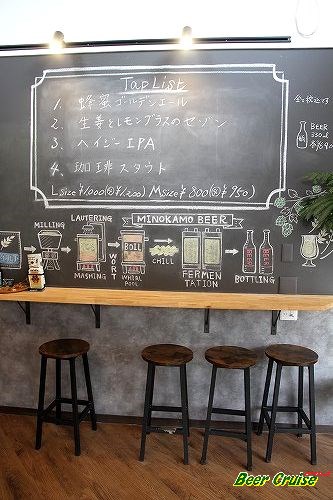 Tap List
1、蜂蜜ゴールデンエール
2、生姜とレモングラスのセゾン
3、ヘイジーIPA
4、珈琲スタウト
LSIZE ¥1,000 MSIZE ¥800
BEER
MINOKAMO BEER
MILLING
LAUTERING
MASHING
WORT
BOIL
WHIRL POOL
CHILL
FERMEN
TATION
BOTTLING
Beer Cruise